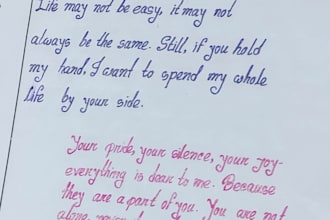 Life may not be easy, it may not
always be the same. Still, if you hold
my hand, I want to spend my whole
life by your side.
Your pride, your silence, your joy-
everything is dear to me. Because
they are a part of you. You are not
alone,